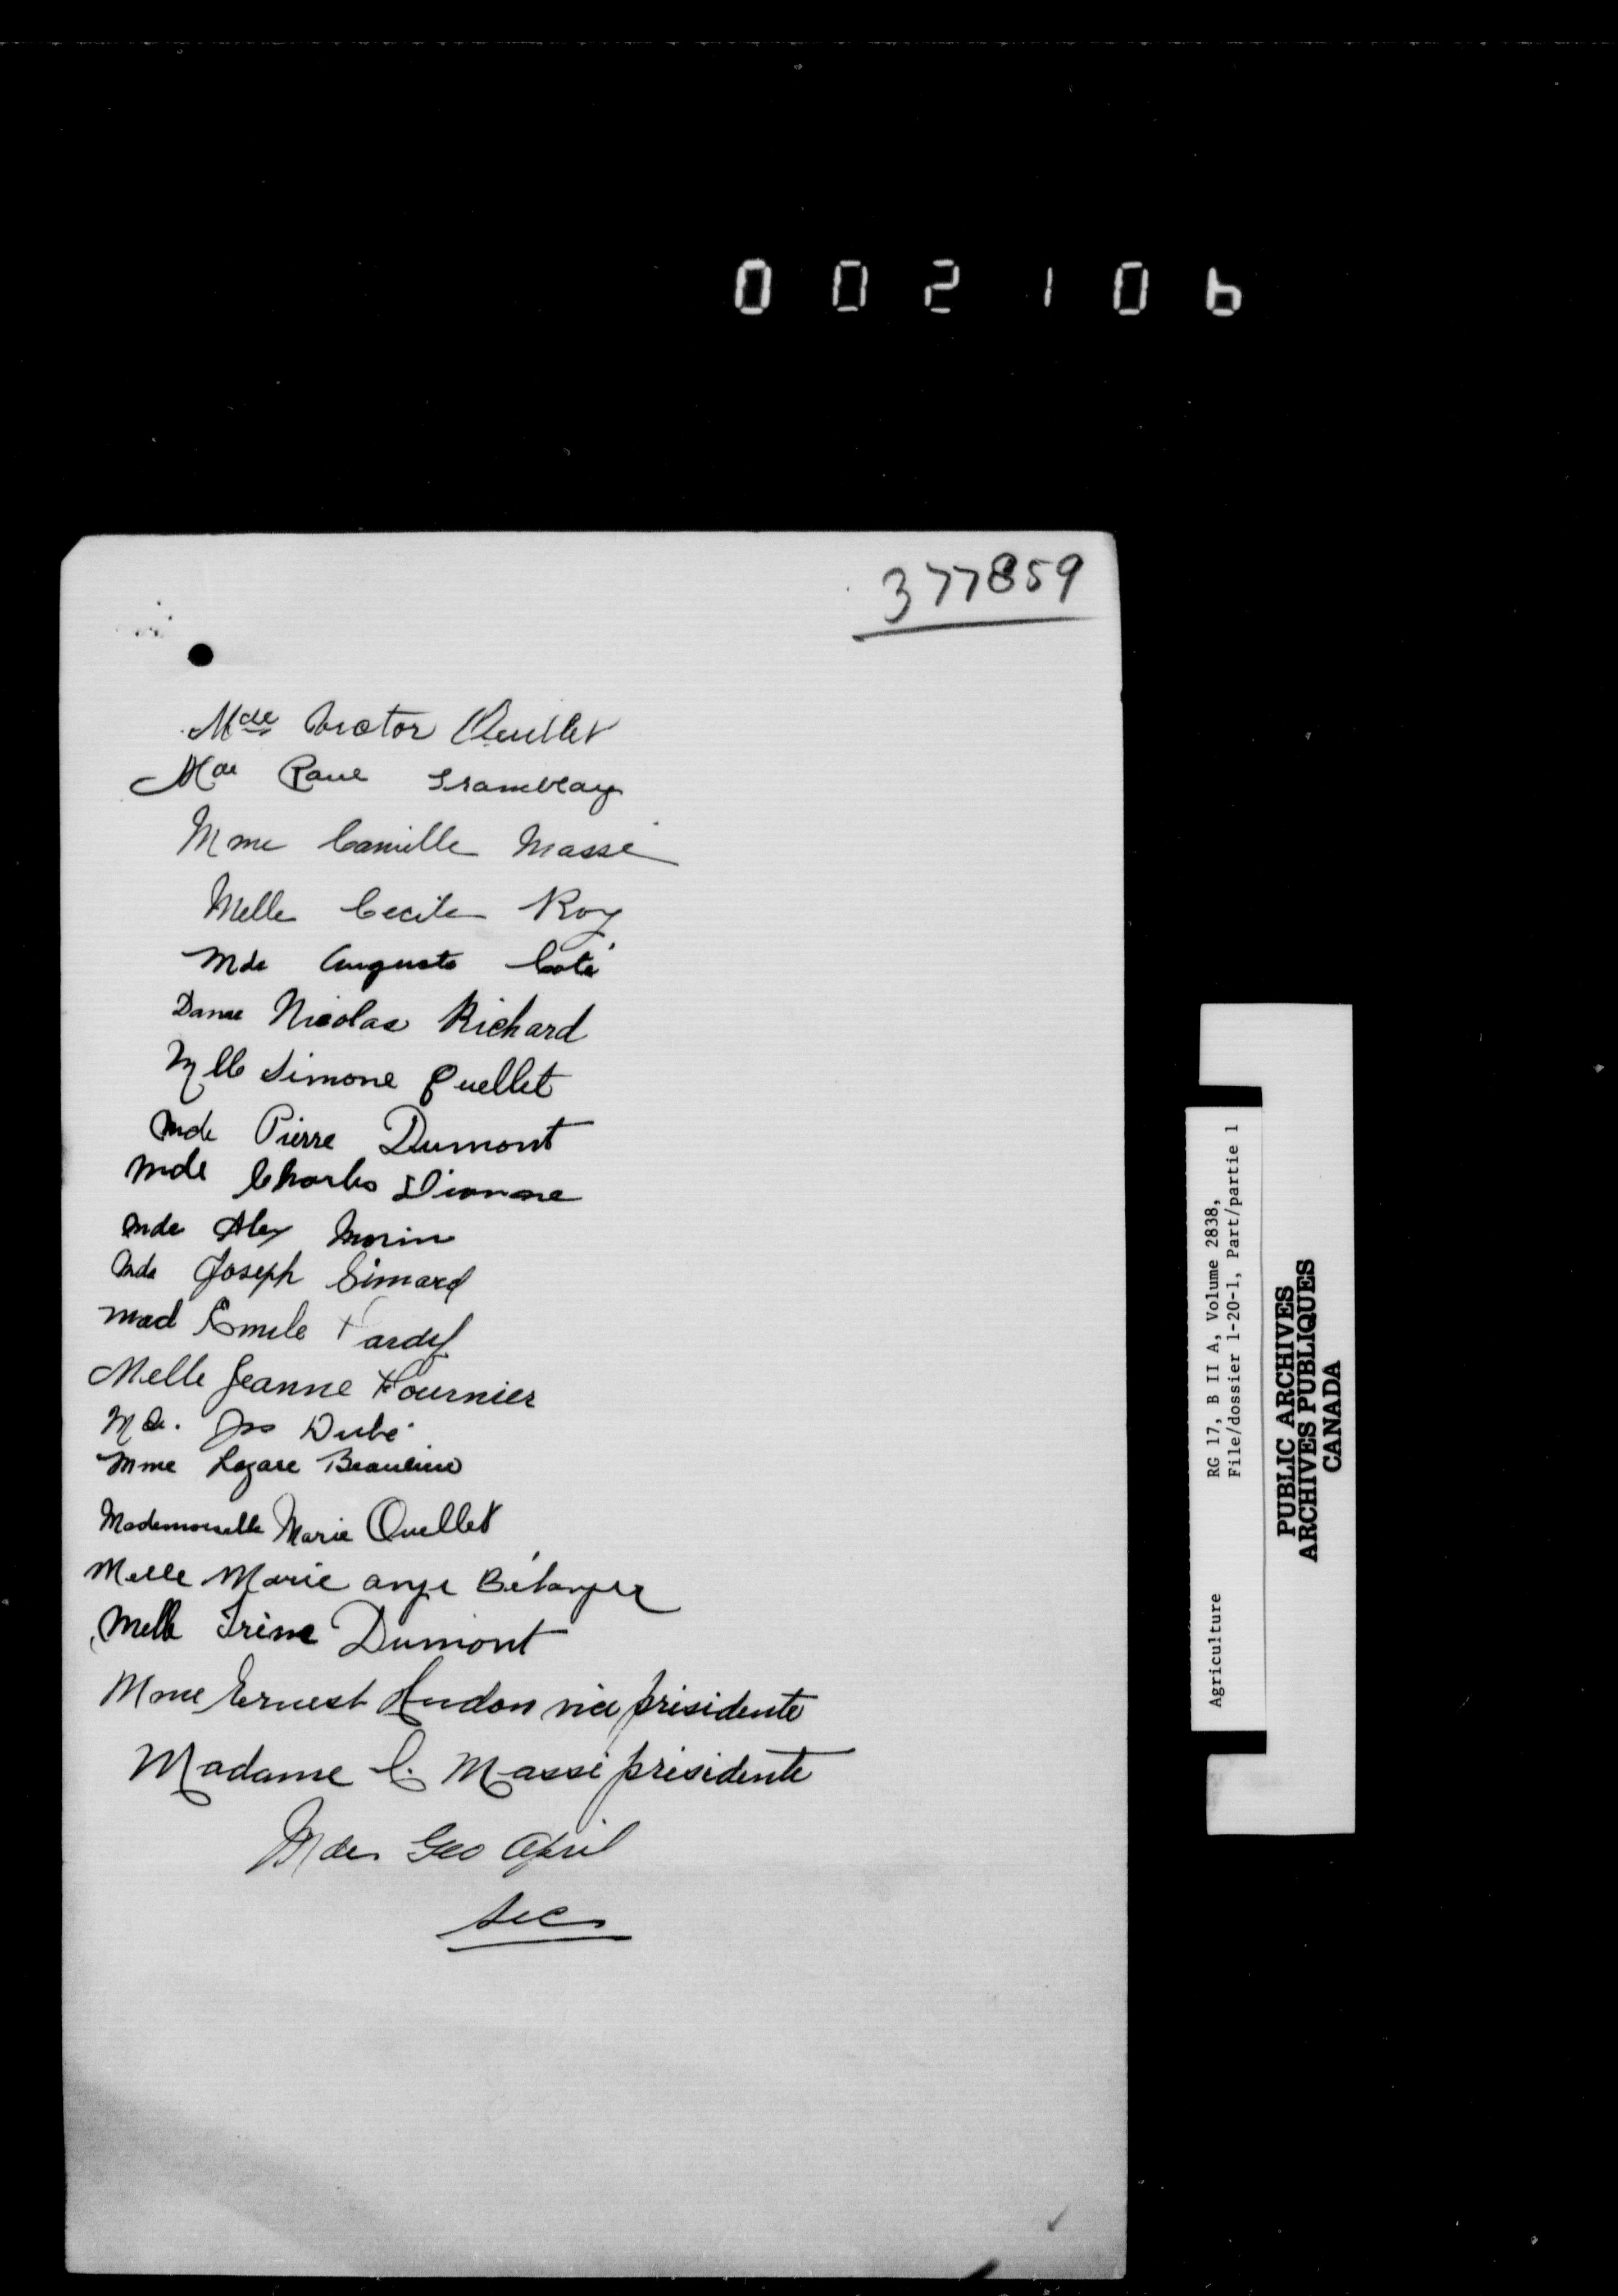 002106
377859
Mde Victor Ouellet
Mde Paul Tramblay
Mme Camille Massé
Melle Cecile Roy
Mde Auguste Coté
Dame Nicolas Richard
Mlle Simone Ouellet
Mde Pierre Dumont
Mde Charles Dionne
Mde Alex Morin
Mde Joseph Simard
Mad Emile Tardif
Melle Jeanne Fournier
Mde. Jos Dubé
Mme Lazare Beaulieu
Mademoiselle Marie Ouellet
Melle Marie ange Bélanger
Melle Irène Dumont
Mme Ernest Hudon vice présidente
Madame C. Massé présidente
Mde Geo April
Sec
Agriculture RG 17, B II A, Volume 2838,
File/dossier 1-20-1, Part/partie 1
PUBLIC ARCHIVES
ARCHIVES PUBLIQUES
CANADA